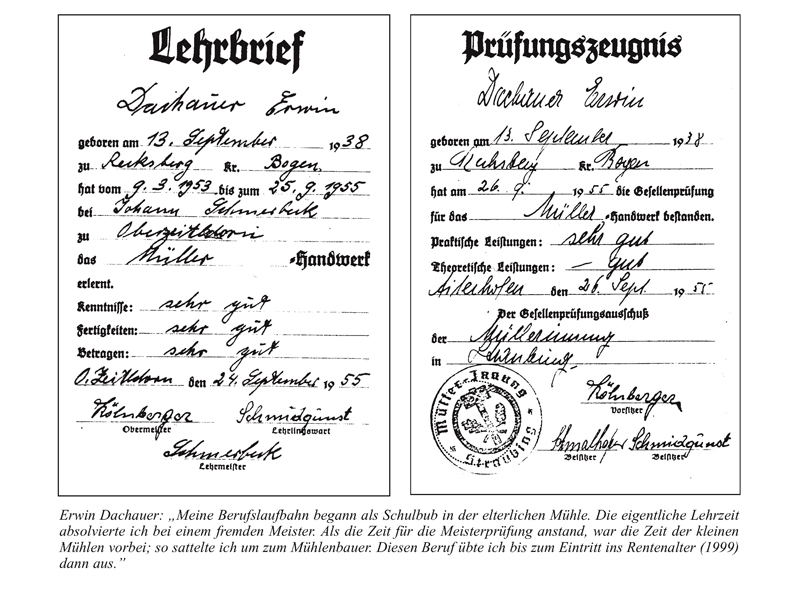 Lehrbrief
Dachauer Erwin
geboren am 13. September 1938
zu Recksberg Kr. Bogen.
hat vom 9. 3. 1953 bis zum 25. 9. 1955
bei Johann Schmerbeck
zu Oberzeitldorn
das Müller =Handwerk
erlernt.
Kenntnisse: sehr gut
Fertigkeiten: sehr gut
Betragen: sehr gut
O. Zeitldorn den 24. September 1955
Kölnberger Schmidgunst
Obermeister Lehrlingswart
Schmerbeck
Lehrmeister
Prüfungszeugnis
Dachauer Erwin
geboren am 13. September 1938
zu Kr. Bogen
hat am 26. 9. 1955 die Gesellenprüfung
für das Müller =Handwerk bestanden.
Praktische Leistungen: sehr gut
Theoretische Leistungen: — gut
Aiterhofen den 26. Sept. 1955
Der Gesellenprüfungsausschuß
der Müllerinnung
in Straubing.
Müller-Innung Straubing
Kölnberger
Vorsitzer
Schmalhofer Schmidgunst
Beisitzer Beisitzer
Erwin Dachauer: „Meine Berufslaufbahn begann als Schulbub in der elterlichen Mühle. Die eigentliche Lehrzeit
absolvierte ich bei einem fremden Meister. Als die Zeit für die Meisterprüfung anstand, war die Zeit der kleinen
Mühlen vorbei; so sattelte ich um zum Mühlenbauer. Diesen Beruf übte ich bis zum Eintritt ins Rentenalter (1999)
dann aus.”